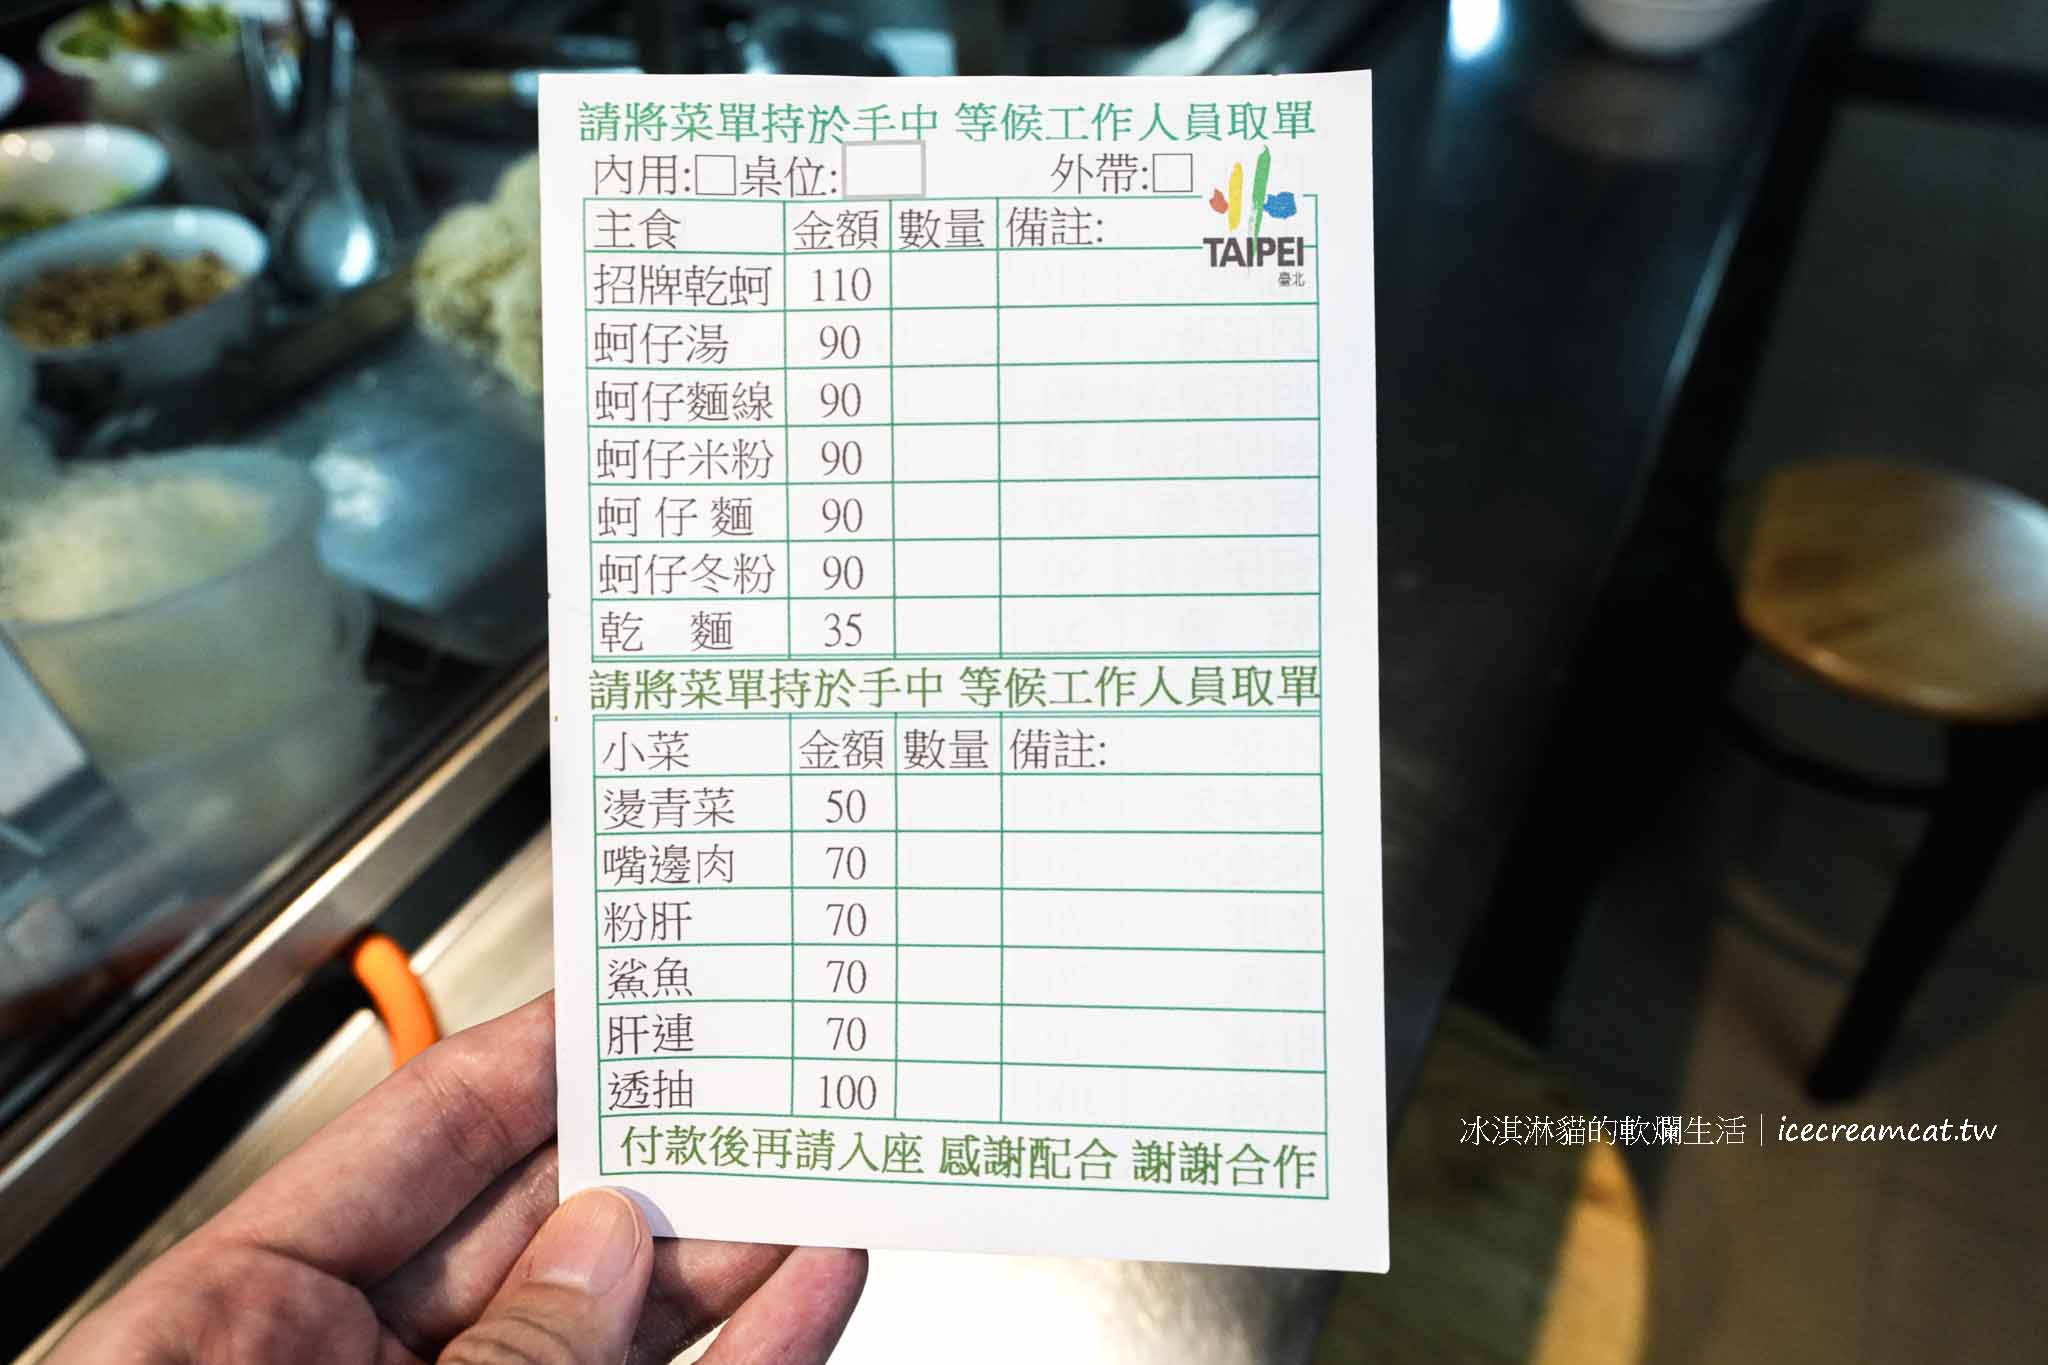 請將菜單持於手中 等候工作人員取單
內用:□桌位: 外帶:□
TAIPEI
臺北
主食 金額 數量 備註:
招牌乾蚵 110
蚵仔湯 90
蚵仔麵線 90
蚵仔米粉 90
蚵仔麵 90
蚵仔冬粉 90
乾 麵 35
請將菜單持於手中 等候工作人員取單
小菜 金額 數量 備註:
燙青菜 50
嘴邊肉 70
粉肝 70
鯊魚 70
肝連 70
透抽 100
付款後再請入座 感謝配合 謝謝合作
冰淇淋貓的軟爛生活|icecreamcat.tw